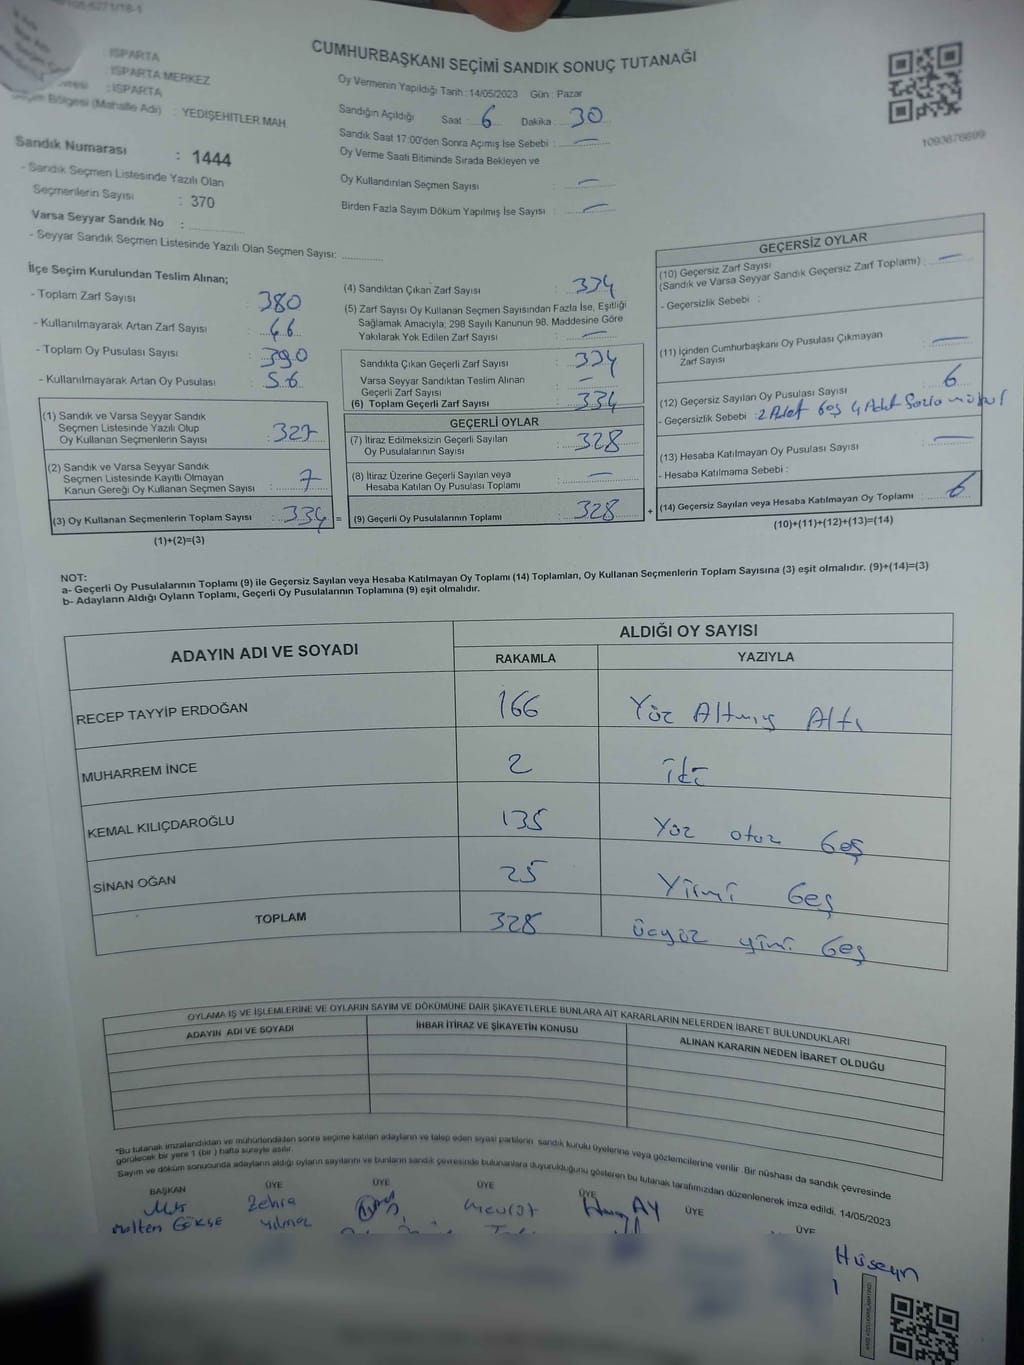 CUMHURBAŞKANI SEÇİMİ SANDIK SONUÇ TUTANAĞI
: ISPARTA
: ISPARTA MERKEZ
: ISPARTA
Seçim Bölgesi (Mahalle Adı) : YEDİŞEHİTLER MAH.
Sandık Numarası : 1444
- Sandık Seçmen Listesinde Yazılı Olan
Seçmenlerin Sayısı : 370
Varsa Seyyar Sandık No :
- Seyyar Sandık Seçmen Listesinde Yazılı Olan Seçmen Sayısı:
Oy Vermenin Yapıldığı Tarih : 14/05/2023 Gün : Pazar
Sandığın Açıldığı Saat : 6 Dakika : 30
Sandık Saat 17:00'den Sonra Açılmış İse Sebebi : —
Oy Verme Saati Bitiminde Sırada Bekleyen ve
Oy Kullandırılan Seçmen Sayısı : —
Birden Fazla Sayım Döküm Yapılmış İse Sayısı : —
1093676699
İlçe Seçim Kurulundan Teslim Alınan;
- Toplam Zarf Sayısı : 380
- Kullanılmayarak Artan Zarf Sayısı : 46
- Toplam Oy Pusulası Sayısı : 390
- Kullanılmayarak Artan Oy Pusulası : 56
(1) Sandık ve Varsa Seyyar Sandık
Seçmen Listesinde Yazılı Olup
Oy Kullanan Seçmenlerin Sayısı : 327
(2) Sandık ve Varsa Seyyar Sandık
Seçmen Listesinde Kayıtlı Olmayan
Kanun Gereği Oy Kullanan Seçmen Sayısı : 7
(3) Oy Kullanan Seçmenlerin Toplam Sayısı : 334 =
(1)+(2)=(3)
(4) Sandıktan Çıkan Zarf Sayısı : 334
(5) Zarf Sayısı Oy Kullanan Seçmen Sayısından Fazla İse, Eşitliği
Sağlamak Amacıyla; 298 Sayılı Kanunun 98. Maddesine Göre
Yakılarak Yok Edilen Zarf Sayısı : —
Sandıkta Çıkan Geçerli Zarf Sayısı : 334
Varsa Seyyar Sandıktan Teslim Alınan
Geçerli Zarf Sayısı : —
(6) Toplam Geçerli Zarf Sayısı : 334
GEÇERLİ OYLAR
(7) İtiraz Edilmeksizin Geçerli Sayılan
Oy Pusulalarının Sayısı : 328
(8) İtiraz Üzerine Geçerli Sayılan veya
Hesaba Katılan Oy Pusulası Toplamı : —
(9) Geçerli Oy Pusulalarının Toplamı : 328 +
GEÇERSİZ OYLAR
(10) Geçersiz Zarf Sayısı
(Sandık ve Varsa Seyyar Sandık Geçersiz Zarf Toplamı) : —
- Geçersizlik Sebebi :
(11) İçinden Cumhurbaşkanı Oy Pusulası Çıkmayan
Zarf Sayısı : —
(12) Geçersiz Sayılan Oy Pusulası Sayısı : 6
- Geçersizlik Sebebi : 2 Adet boş 4 Adet
(13) Hesaba Katılmayan Oy Pusulası Sayısı : —
- Hesaba Katılmama Sebebi :
(14) Geçersiz Sayılan veya Hesaba Katılmayan Oy Toplamı : 6
(10)+(11)+(12)+(13)=(14)
NOT:
a- Geçerli Oy Pusulalarının Toplamı (9) ile Geçersiz Sayılan veya Hesaba Katılmayan Oy Toplamı (14) Toplamları, Oy Kullanan Seçmenlerin Toplam Sayısına (3) eşit olmalıdır. (9)+(14)=(3)
b- Adayların Aldığı Oyların Toplamı, Geçerli Oy Pusulalarının Toplamına (9) eşit olmalıdır.
ADAYIN ADI VE SOYADI ALDIĞI OY SAYISI
RAKAMLA YAZIYLA
RECEP TAYYİP ERDOĞAN 166 Yüz Altmış Altı
MUHARREM İNCE 2 iki
KEMAL KILIÇDAROĞLU 135 Yüz otuz beş
SİNAN OĞAN 25 Yirmi beş
TOPLAM 328 üçyüz yirmi beş
OYLAMA İŞ VE İŞLEMLERİNE VE OYLARIN SAYIM VE DÖKÜMÜNE DAİR ŞİKAYETLERLE BUNLARA AİT KARARLARIN NELERDEN İBARET BULUNDUKLARI
ADAYIN ADI VE SOYADI İHBAR İTİRAZ VE ŞİKAYETİN KONUSU ALINAN KARARIN NEDEN İBARET OLDUĞU
*Bu tutanak imzalandıktan ve mühürlendikten sonra seçime katılan adayların ve talep eden siyasi partilerin sandık kurulu üyelerine veya gözlemcilerine verilir. Bir nüshası da sandık çevresinde
görülecek bir yere 1 (bir) hafta süreyle asılır.
Sayım ve döküm sonucunda adayların aldığı oyların sayılarını ve bunların sandık çevresinde bulunanlara duyurulduğunu gösteren bu tutanak tarafımızdan düzenlenerek imza edildi. 14/05/2023
BAŞKAN ÜYE ÜYE ÜYE ÜYE ÜYE ÜYE
Zehra Mevlüt AY
Yılmaz
Hüseyn